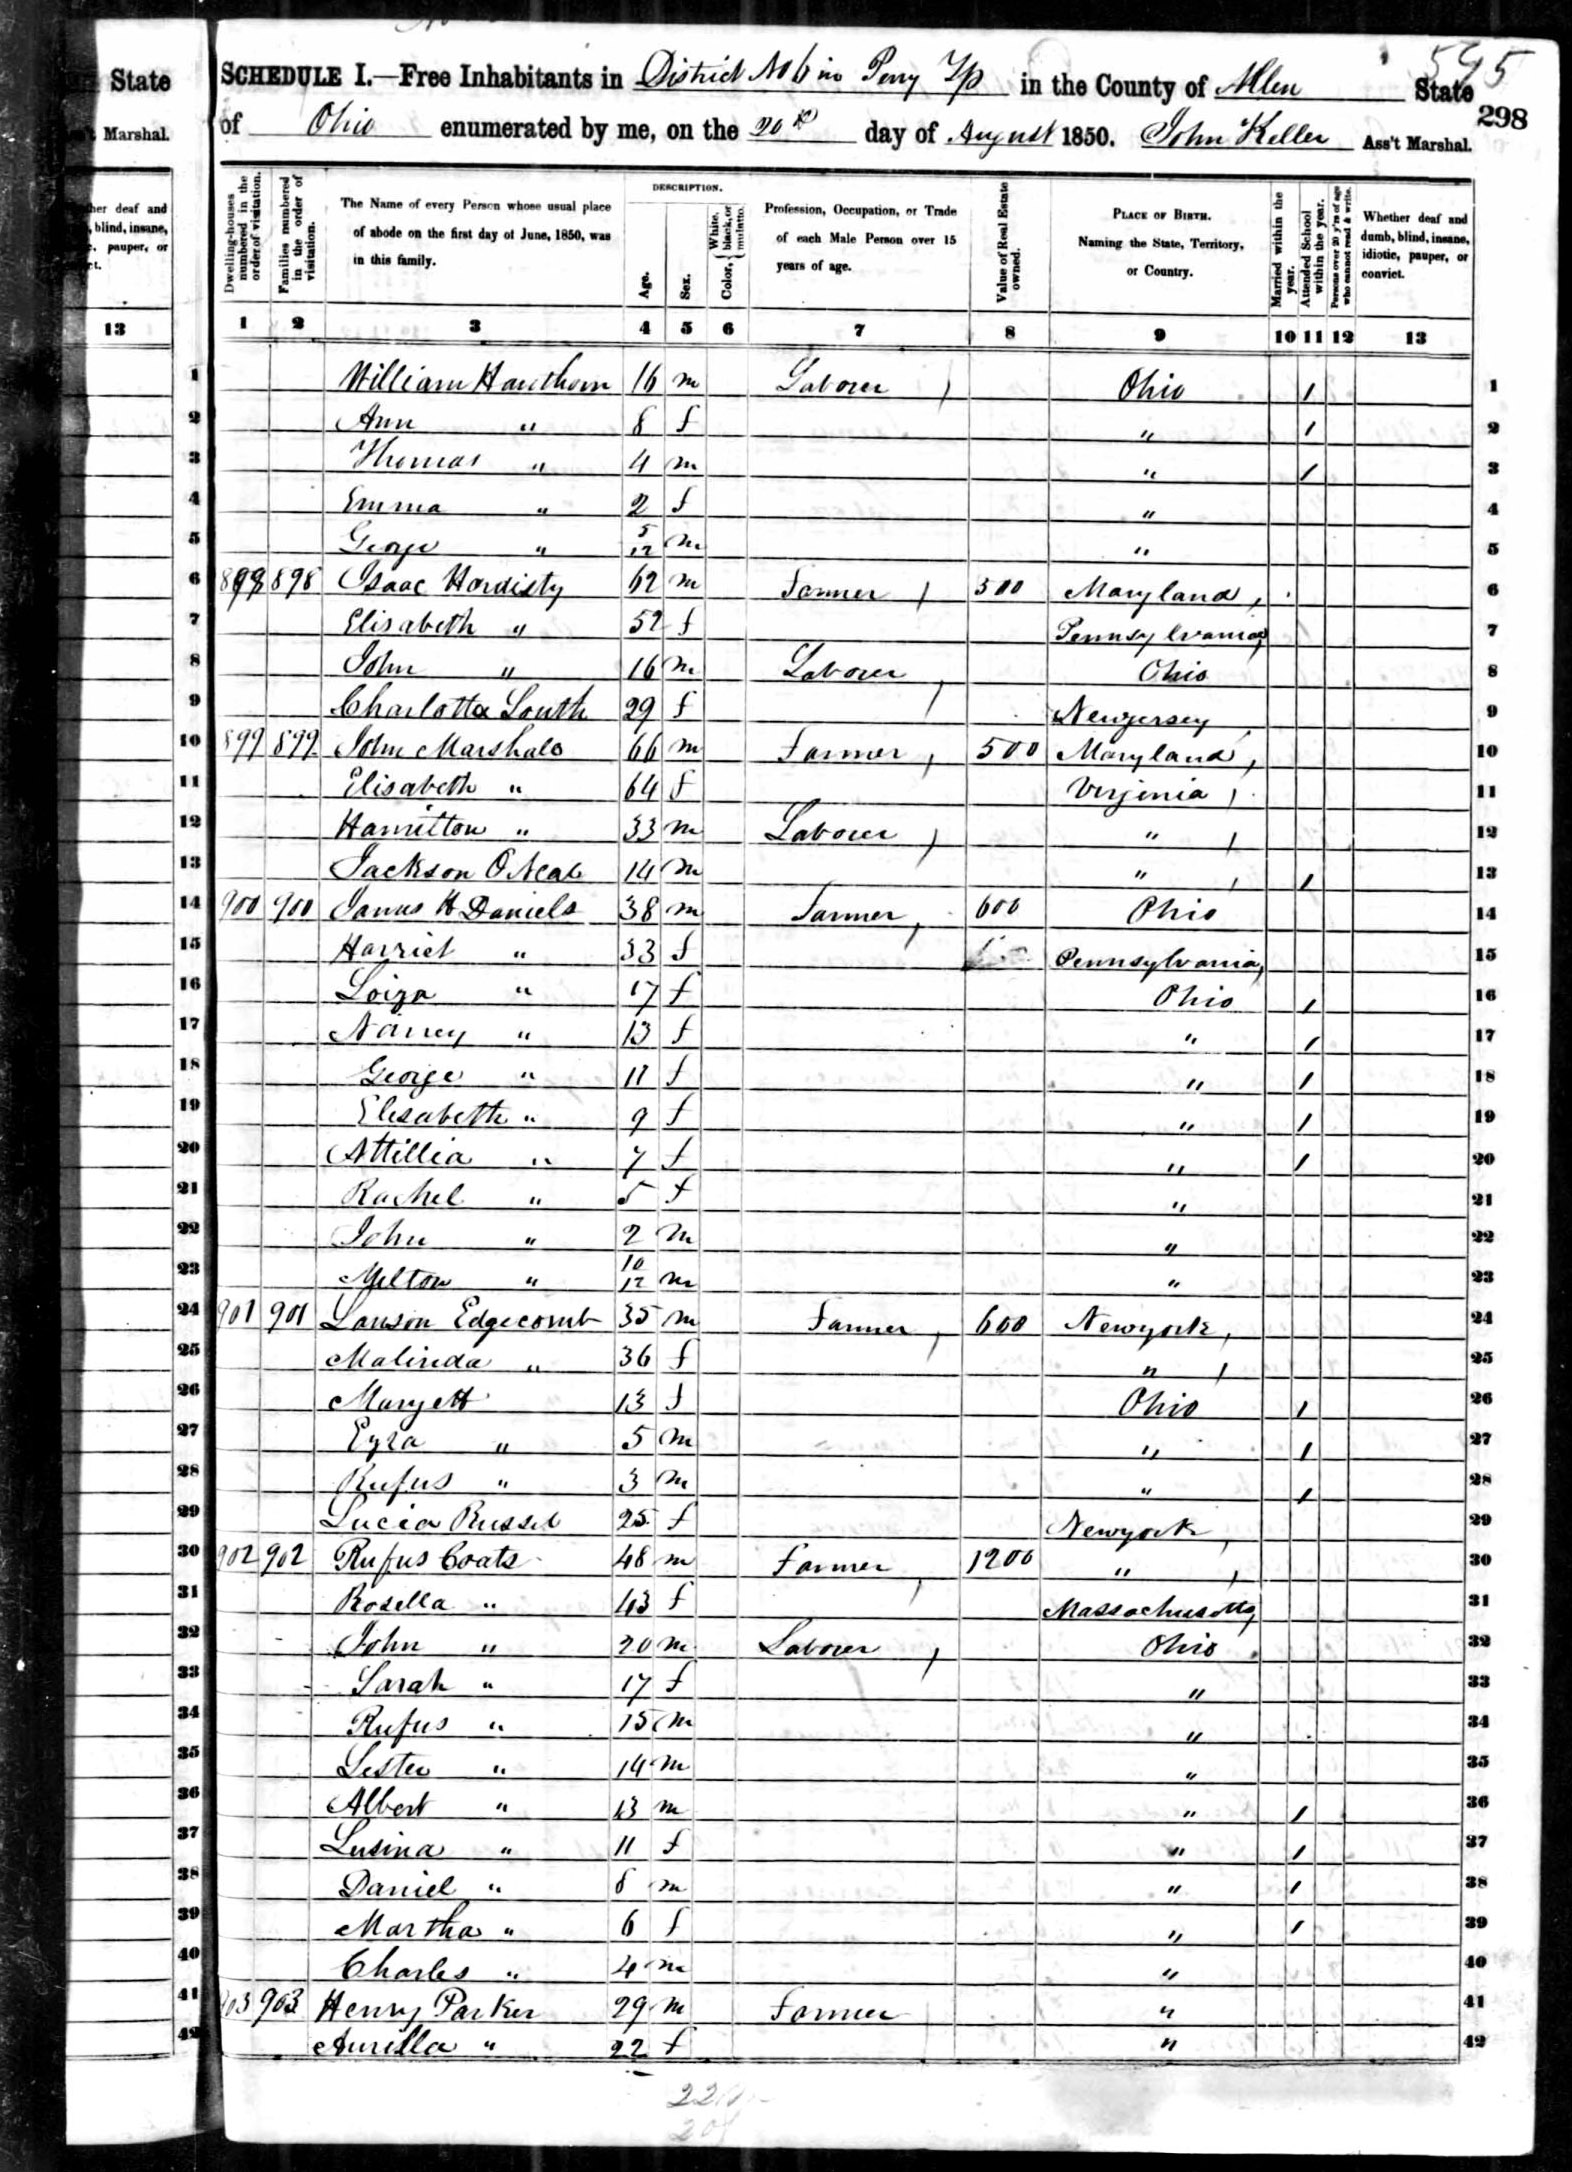 595
State
't Marshal.
her deaf and
, blind, insane,
pauper, or
ct.
13
SCHEDULE I.—Free Inhabitants in District No 6 in Perry Tp in the County of Allen State
298
of Ohio enumerated by me, on the 20th day of August 1850. John Keller Ass't Marshal.
Dwelling-houses numbered in the order of visitation.
Families numbered in the order of visitation.
The Name of every Person whose usual place of abode on the first day of June, 1850, was in this family.
DESCRIPTION.
Age.
Sex.
Color, { White, black, or mulatto.
Profession, Occupation, or Trade of each Male Person over 15 years of age.
Value of Real Estate owned.
PLACE OF BIRTH. Naming the State, Territory, or Country.
Married within the year.
Attended School within the year.
Persons over 20 y'rs of age who cannot read & write.
Whether deaf and dumb, blind, insane, idiotic, pauper, or convict.
1 2 3 4 5 6 7 8 9 10 11 12 13
1 William Hawthorn 16 m Laborer Ohio / 1
2 Ann " 8 f " / 2
3 Thomas " 4 m " / 3
4 Emma " 2 f " 4
5 George " 5/12 m " 5
6 898 898 Isaac Hardisty 62 m Farmer 500 Maryland 6
7 Elisabeth " 52 f Pennsylvania 7
8 John " 16 m Laborer Ohio 8
9 Charlotta South 29 f Newjersey 9
10 899 899 John Marshal 66 m Farmer 500 Maryland 10
11 Elisabeth " 64 f Virjinia 11
12 Hamilton " 33 m Laborer " 12
13 Jackson ONeal 14 m " / 13
14 900 900 James H Daniels 38 m Farmer 600 Ohio 14
15 Harriet " 33 f Pennsylvania 15
16 Loiza " 17 f Ohio / 16
17 Nancy " 13 f " / 17
18 George " 11 f " / 18
19 Elisabeth " 9 f " / 19
20 Attillia " 7 f " / 20
21 Rachel " 5 f " 21
22 John " 2 m " 22
23 Melton " 10/12 m " 23
24 901 901 Lanson Edgecomb 35 m Farmer 600 Newyork 24
25 Malinda " 36 f " 25
26 Maryett 13 f Ohio / 26
27 Ezra " 5 m " / 27
28 Rufus " 3 m " / 28
29 Lucia Russel 25 f Newyork 29
30 902 902 Rufus Coats 48 m Farmer 1200 " 30
31 Rosella " 43 f Massachusetts 31
32 John " 20 m Laborer Ohio 32
33 Sarah " 17 f " 33
34 Rufus " 15 m " 34
35 Lester " 14 m " 35
36 Albert " 13 m " / 36
37 Lusina " 11 f " / 37
38 Daniel " 8 m " / 38
39 Martha " 6 f " / 39
40 Charles " 4 m " 40
41 903 903 Henry Parker 29 m Farmer " 41
42 Aurilla " 22 f " 42